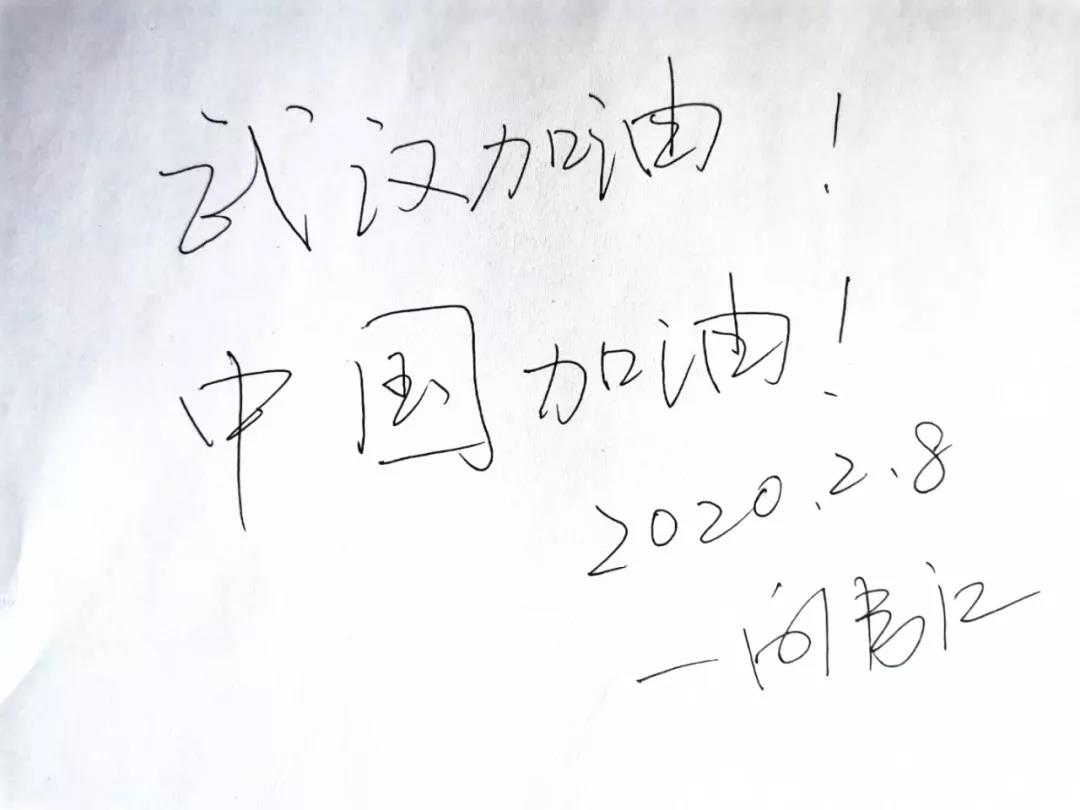 武汉加油！
中国加油！
2020.2.8